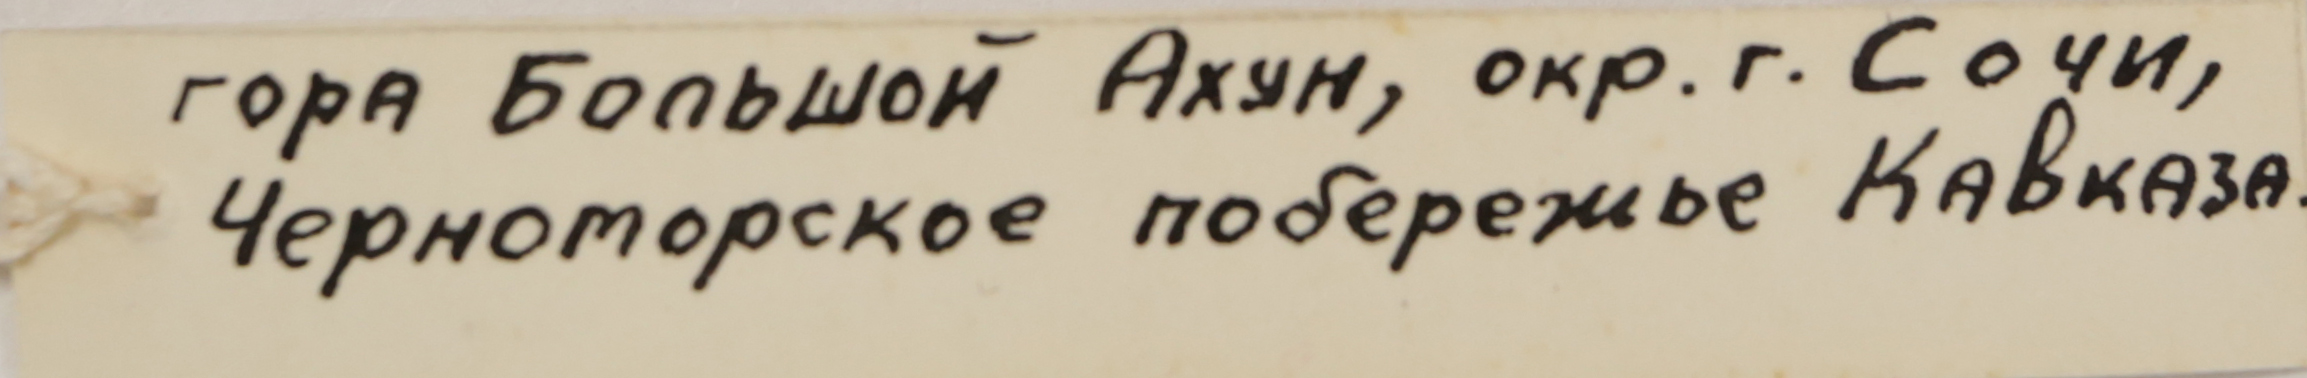 гора Большой Ахун, окр. г. Сочи,
Черноморское побережье Кавказа.